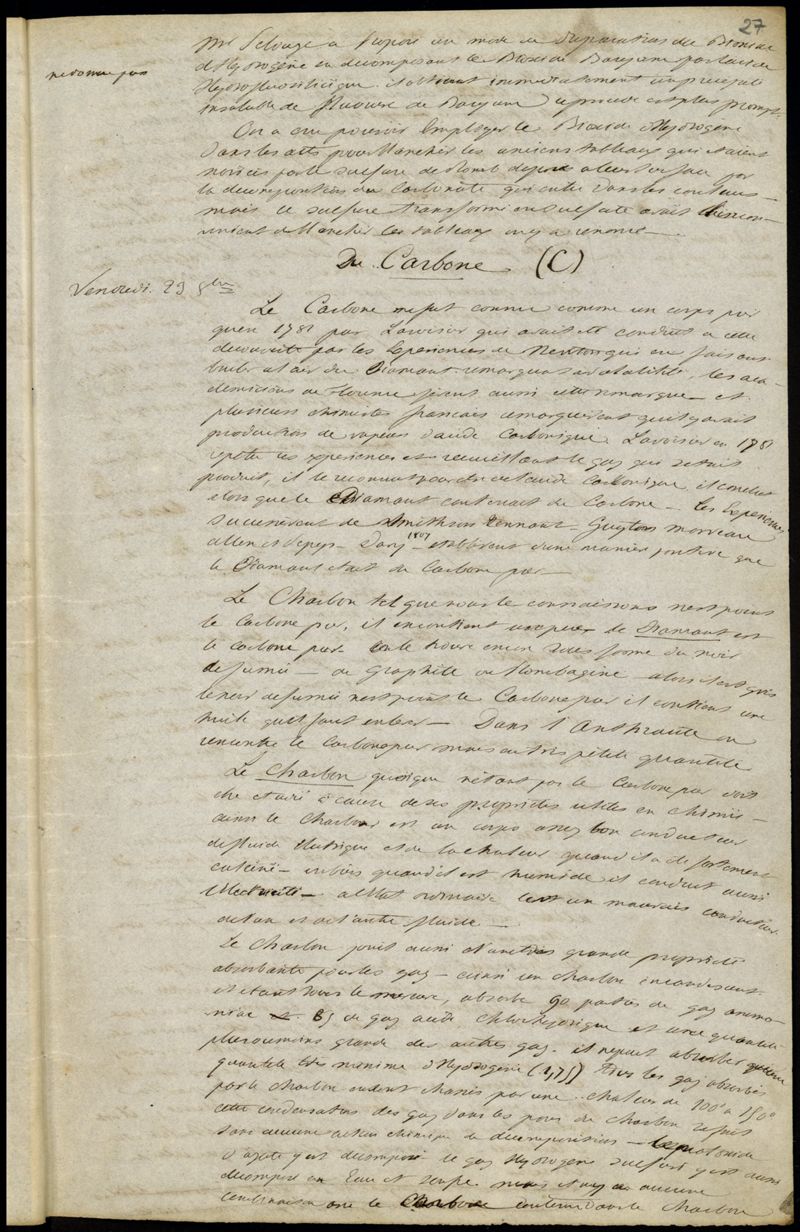 27
Mr Pelouze a proposé un mode de préparation du Bioxide
d'Hydrogène en décomposant le Bioxide de Baryum par l'acide
ne donne pas
Hydrofluosilicique. il obtient immédiatement un précipité
insoluble de fluorure de Baryum
On a cru pouvoir Employer le Bioxide d'Hydrogène
dans les arts pour blanchir les anciens tableaux qui étaient
noircis par le sulfure de Plomb déposé à leur surface par
la décomposition du Carbonate qui entre dans les couleurs —
mais le sulfure transformé en sulfate avait l'incon-
vénient de blanchir les tableaux on y a renoncé —
Du Carbone (C)
Vendredi. 23 9bre
Le Carbone ne fut connu comme un corps pur
qu'en 1781 par Lavoisier qui avait été conduit à cette
découverte par les Expériences de Newton qui en faisant
bruler à l'air du Diamant remarqua sa volatilité. les aca-
démiciens de Florence firent aussi cette remarque — et
plusieurs chimistes français remarquèrent qu'il y avait
production de vapeurs d'acide Carbonique. Lavoisier en 1781
répéta ces expériences et recueillant le gaz qui s'était
produit, il le reconnut pour être de l'acide Carbonique, il conclut
alors que le Diamant contenait du Carbone — les Expériences
successives de Smithson Tennant — Guyton Morveau
allen et Pepys — Davy 1807 — établirent d'une manière positive que
le Diamant était du Carbone pur —
Le Charbon tel que nous le connaissons n'est point
le Carbone pur, il en contient un peu — le Diamant est
le carbone pur. on le trouve encore sous forme de noir
de fumée — de Graphite ou Plombagine — alors il est gris
le noir de fumée n'est point le Carbone pur il contient une
huile qu'il faut enlever — Dans l'Anthracite on
rencontre le Carbone pur mais en très petite quantité
Le Charbon quoique n'étant pas le Carbone pur doit
être étudié à cause de ses propriétés utiles en chimie —
ainsi le Charbon est un corps assez bon conducteur
du fluide électrique et de la chaleur quand il a été fortement
calciné — ou bien quand il est humide il conduit aussi
l'électricité — à l'état ordinaire c'est un mauvais conducteur
de l'un et de l'autre fluide —
Le Charbon jouit aussi d'une très grande propriété
absorbante pour les gaz — ainsi un charbon incandescent
éteint sous le mercure, absorbe 90 parties de gaz ammo-
niac 85 de gaz acide Chlorhydrique et une quantité
plus ou moins grande des autres gaz. il ne peut absorber qu'une
quantité très minime d'Hydrogène (1,75) Tous les gaz absorbés
par le charbon en sont chassés par une chaleur de 100° à 150°
cette condensation des gaz dans les pores du charbon se fait
sans aucune action chimique de décomposition — le protoxide
d'azote y est décomposé le gaz Hydrogène sulfuré y est aussi
décomposé en Eau et soufre mais il n'y a aucune
combinaison avec le Carbone contenu dans le Charbon